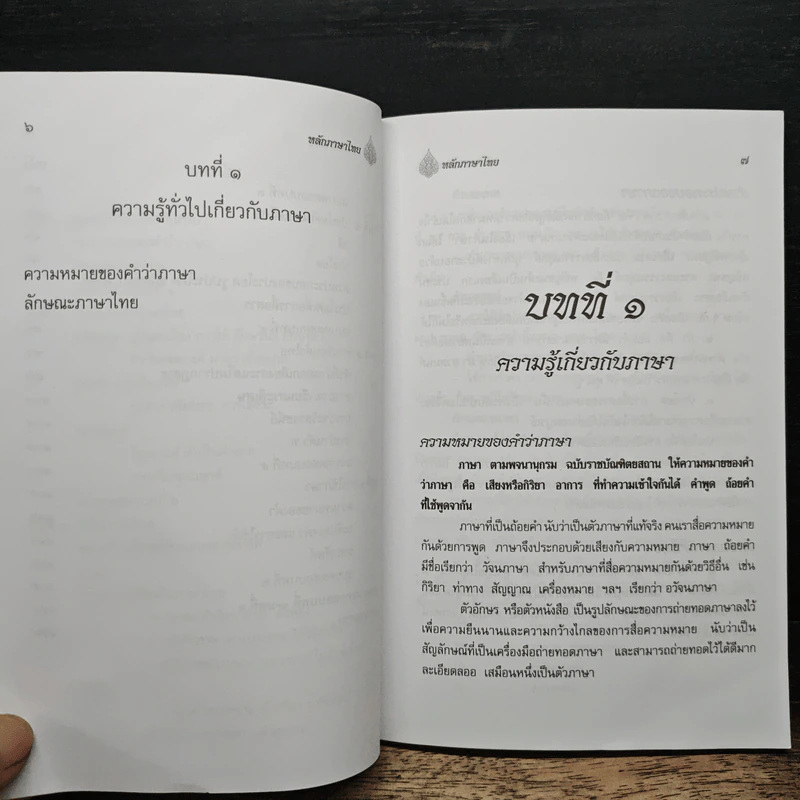 ๖
หลักภาษาไทย
บทที่ ๑
ความรู้ทั่วไปเกี่ยวกับภาษา
ความหมายของคำว่าภาษา
ลักษณะภาษาไทย
หลักภาษาไทย
๗
บทที่ ๑
ความรู้เกี่ยวกับภาษา
ความหมายของคำว่าภาษา
ภาษา ตามพจนานุกรม ฉบับราชบัณฑิตยสถาน ให้ความหมายของคำ
ว่าภาษา คือ เสียงหรือกิริยา อาการ ที่ทำความเข้าใจกันได้ คำพูด ถ้อยคำ
ที่ใช้พูดจากัน
ภาษาที่เป็นถ้อยคำ นับว่าเป็นตัวภาษาที่แท้จริง คนเราสื่อความหมาย
กันด้วยการพูด ภาษาจึงประกอบด้วยเสียงกับความหมาย ภาษา ถ้อยคำ
มีชื่อเรียกว่า วัจนภาษา สำหรับภาษาที่สื่อความหมายกันด้วยวิธีอื่น เช่น
กิริยา ท่าทาง สัญญาณ เครื่องหมาย ฯลฯ เรียกว่า อวัจนภาษา
ตัวอักษร หรือตัวหนังสือ เป็นรูปลักษณะของการถ่ายทอดภาษาลงไว้
เพื่อความยืนนานและความกว้างไกลของการสื่อความหมาย นับว่าเป็น
สัญลักษณ์ที่เป็นเครื่องมือถ่ายทอดภาษา และสามารถถ่ายทอดไว้ได้ดีมาก
ละเอียดลออ เสมือนหนึ่งเป็นตัวภาษา